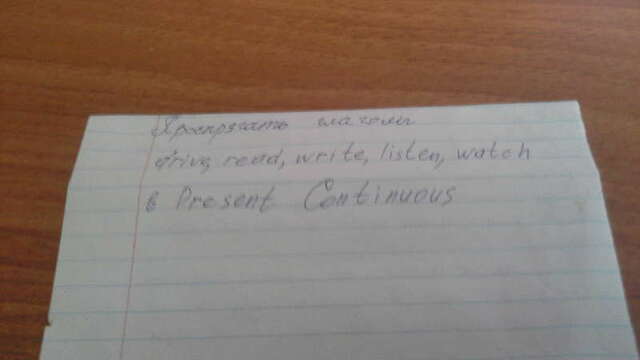 Проспрягать глаголы
drive, read, write, listen, watch
в Present Continuous